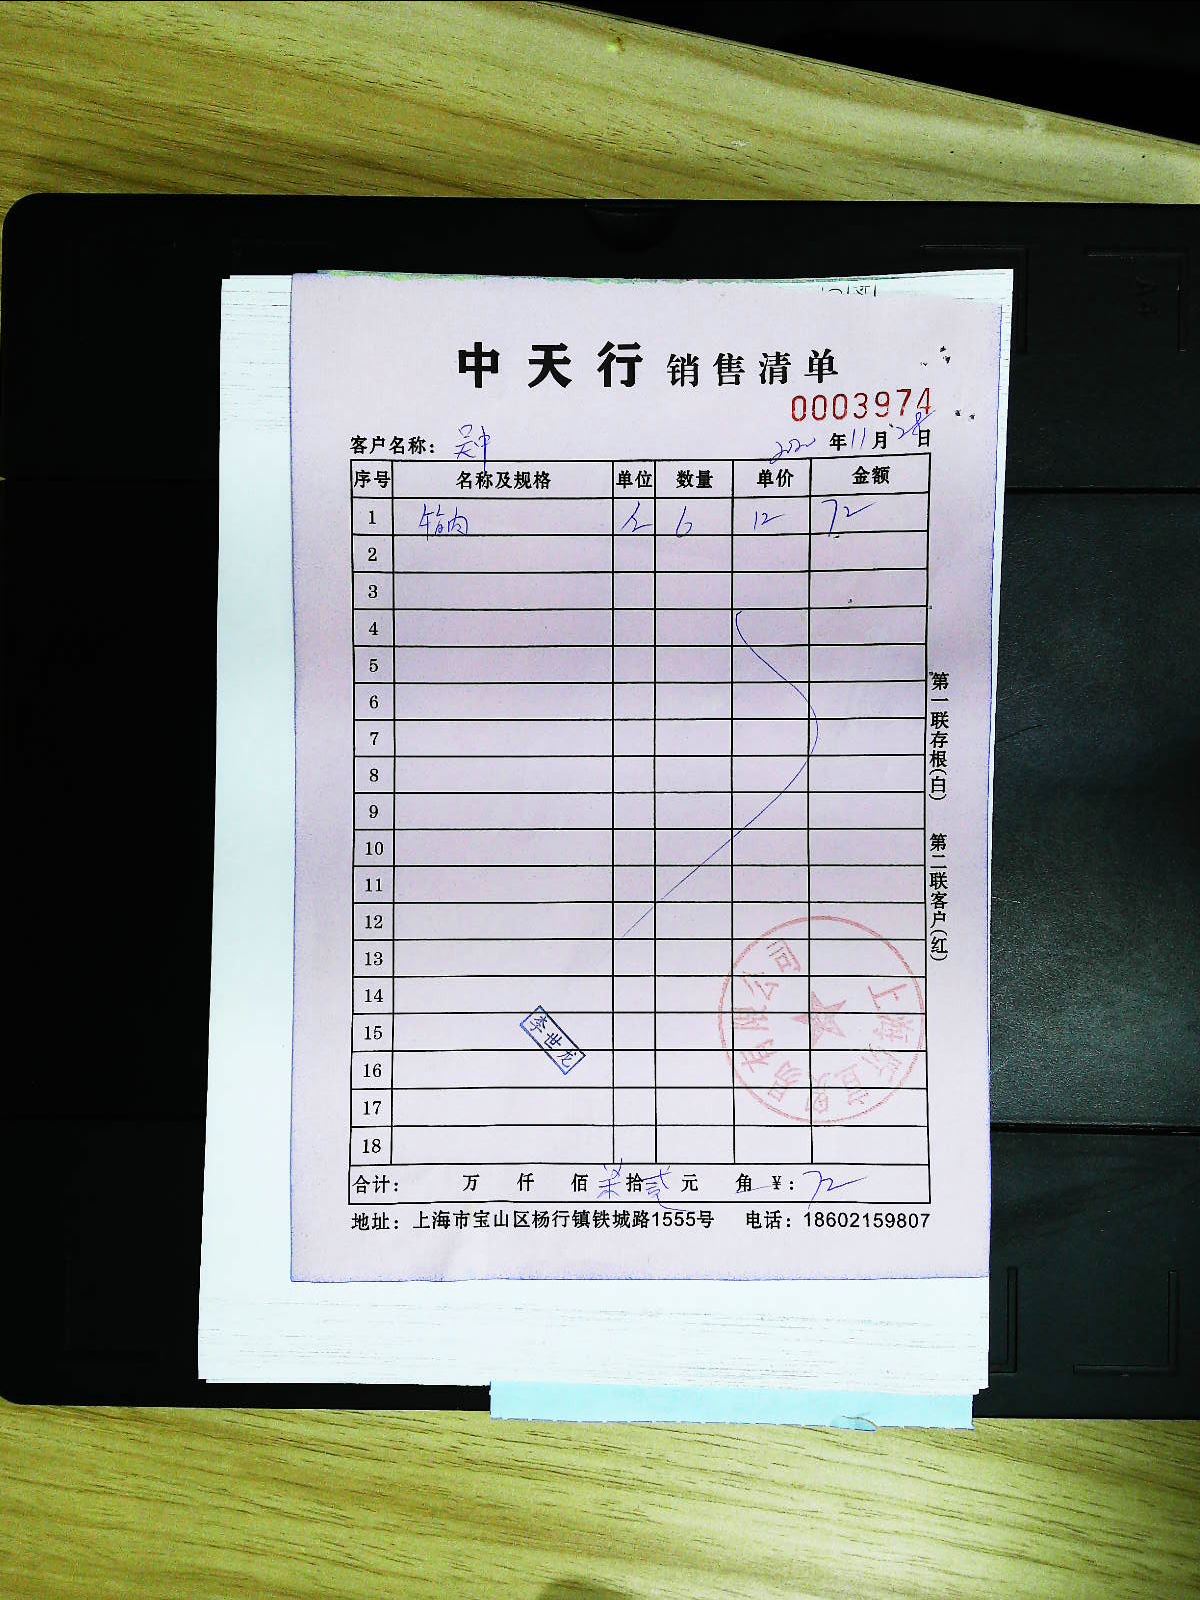 中天行 销售清单
0003974
客户名称: 吴中 2020年11月28日
序号 名称及规格 单位 数量 单价 金额
1 6 12 72
2
3
4
5
6
7
8
9
10
11
12
13
14
15
16
17
18
李世龙
合计: 万 仟 佰 柒拾贰元 角 ¥: 72
地址: 上海市宝山区杨行镇铁城路1555号 电话: 18602159807
第一联存根(白) 第二联客户(红)